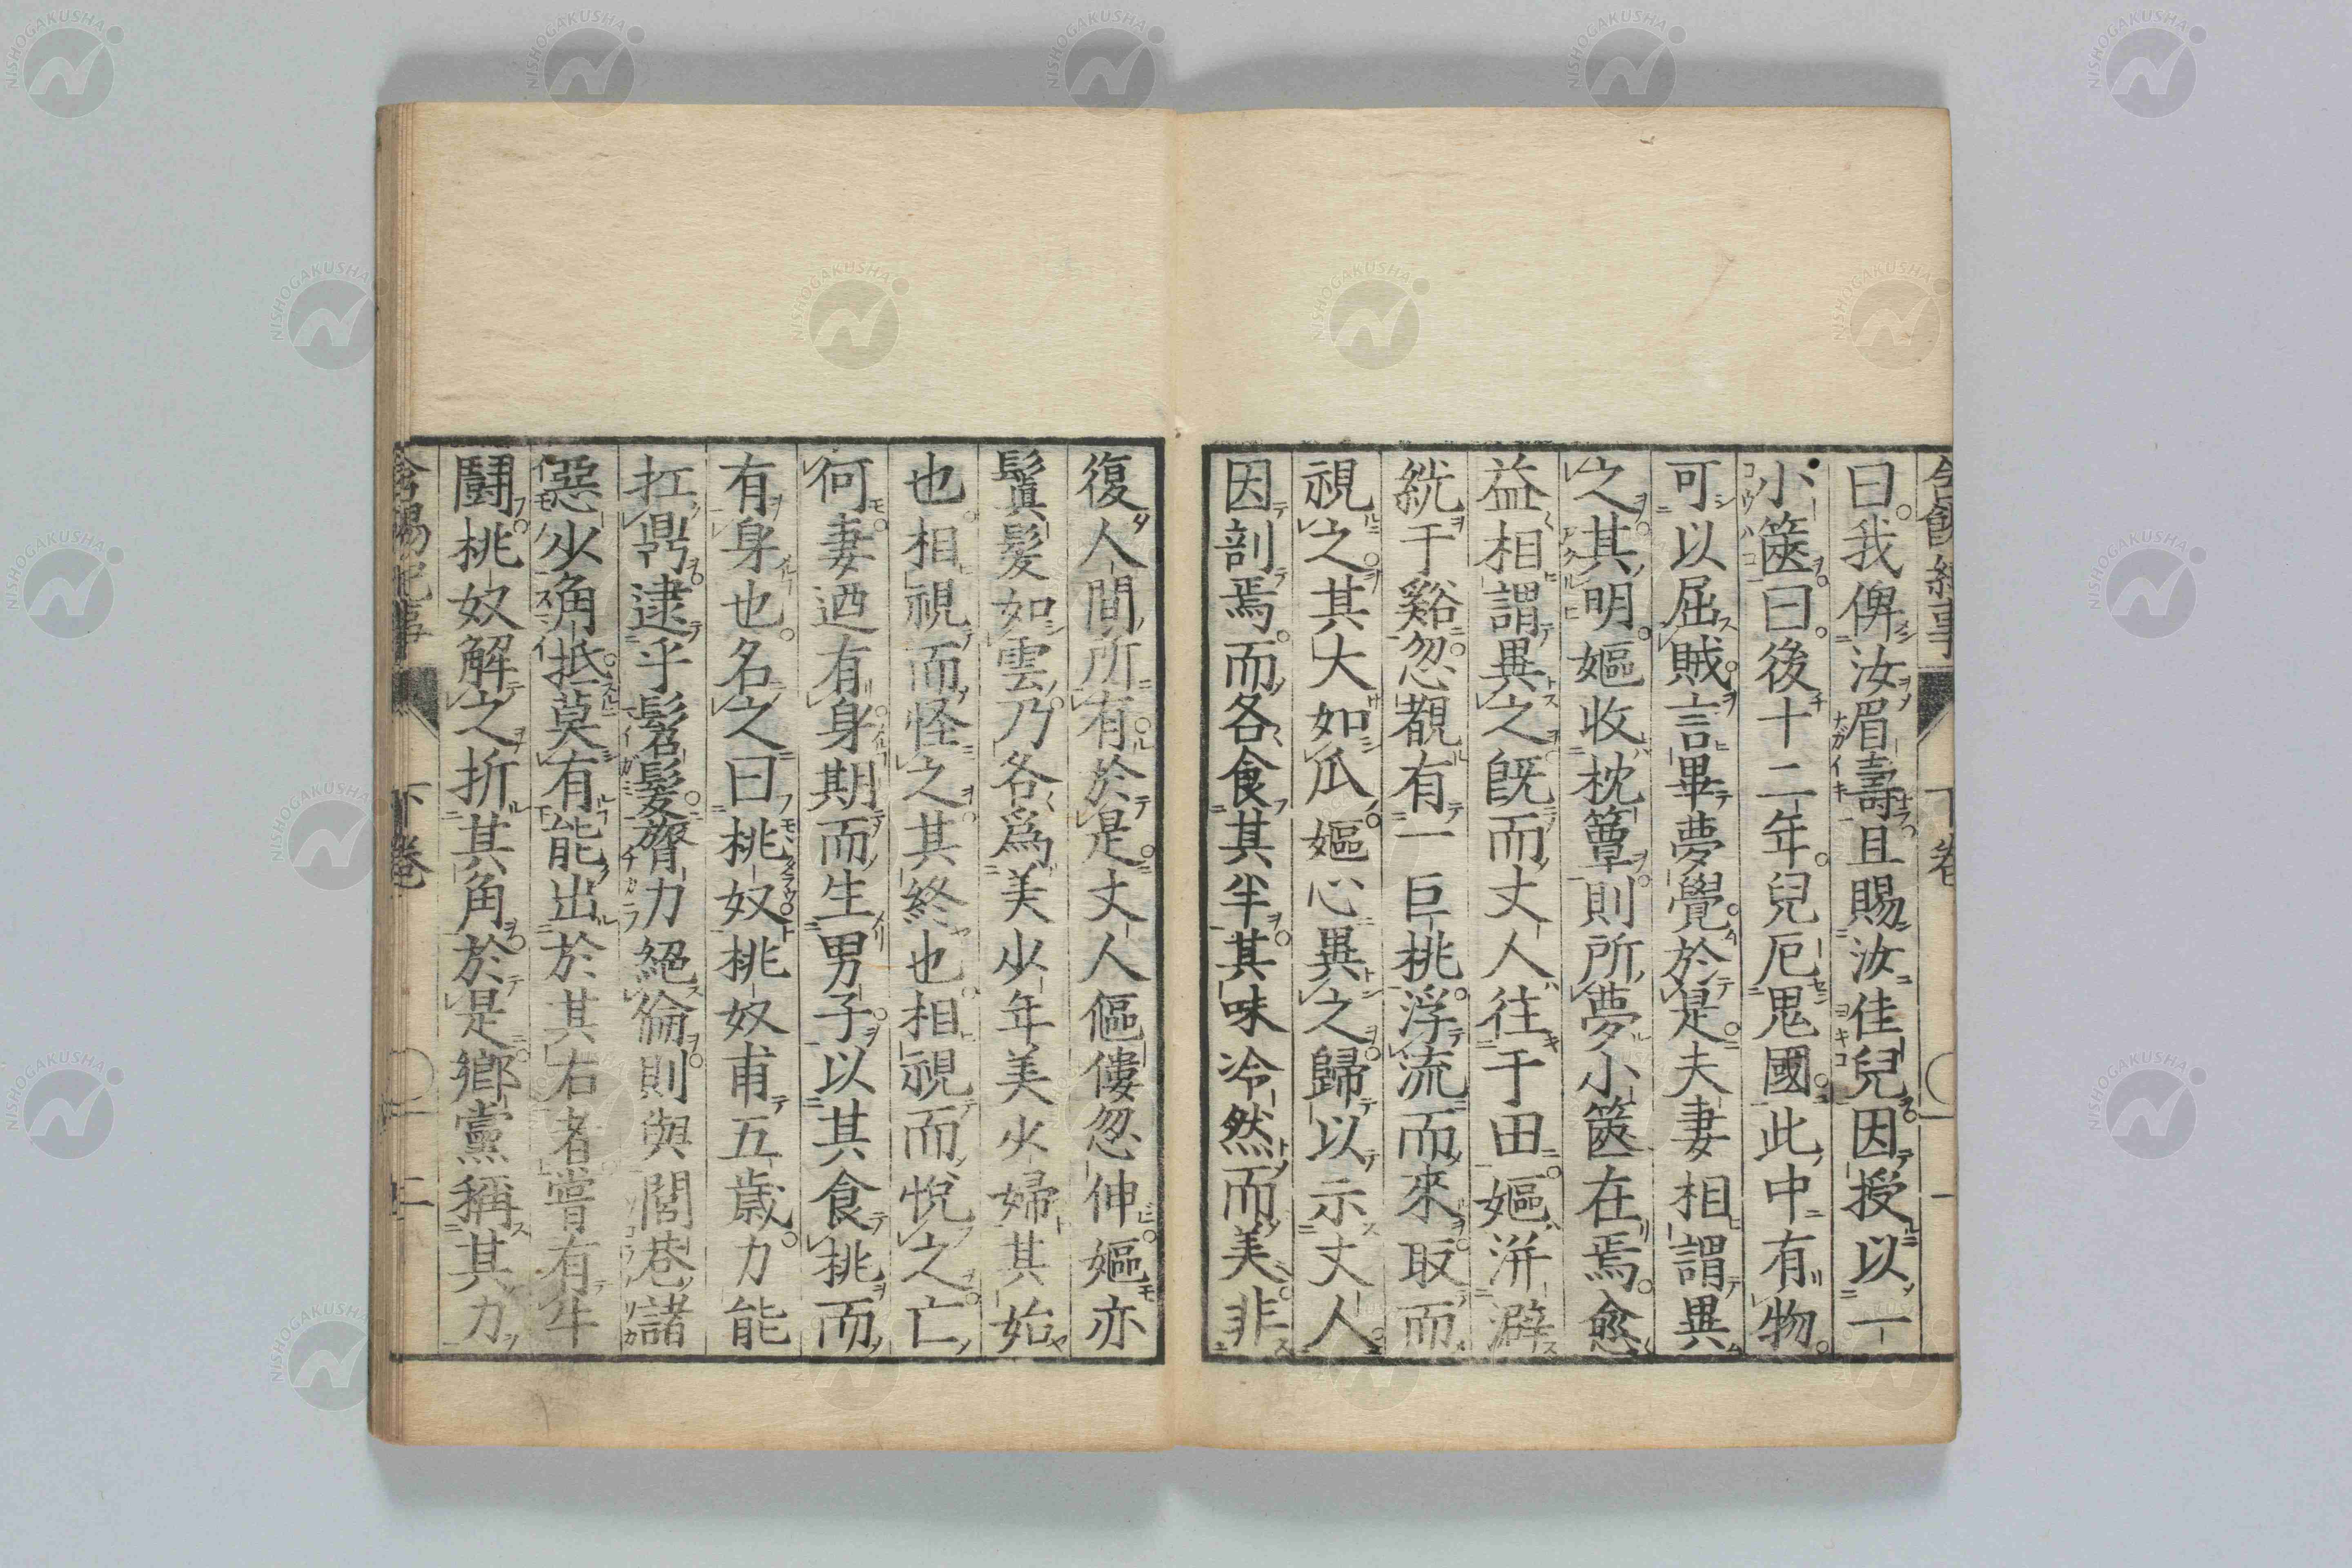 曰我俾汝眉壽且賜汝佳兒因授以一
小篋曰後十二年兒厄鬼國此中有物
可以屈賊言畢夢覺於是夫妻相謂異
之其明嫗收枕簟則所夢小篋在焉愈
益相謂異之既而丈人往于田嫗洴澼
絖于谿忽覩有一巨桃浮流而來取而
視之其大如瓜嫗心異之歸以示丈人
因剖焉而各食其半其味冷然而美非
復人間所有於是丈人傴僂忽伸嫗亦
鬒髮如雲乃各爲美少年美少婦其始
也相視而怪之其終也相視而悅之亡
何妻迺有身期而生男子以其食桃而
有身也名之曰桃奴桃奴甫五歲力能
扛鼎逮乎髫髮膂力絕倫則與閭巷諸
惡少角抵莫有能出於其右者嘗有牛
鬪桃奴解之折其角於是鄉黨稱其力
下卷
二
NISHOGAKUSHA